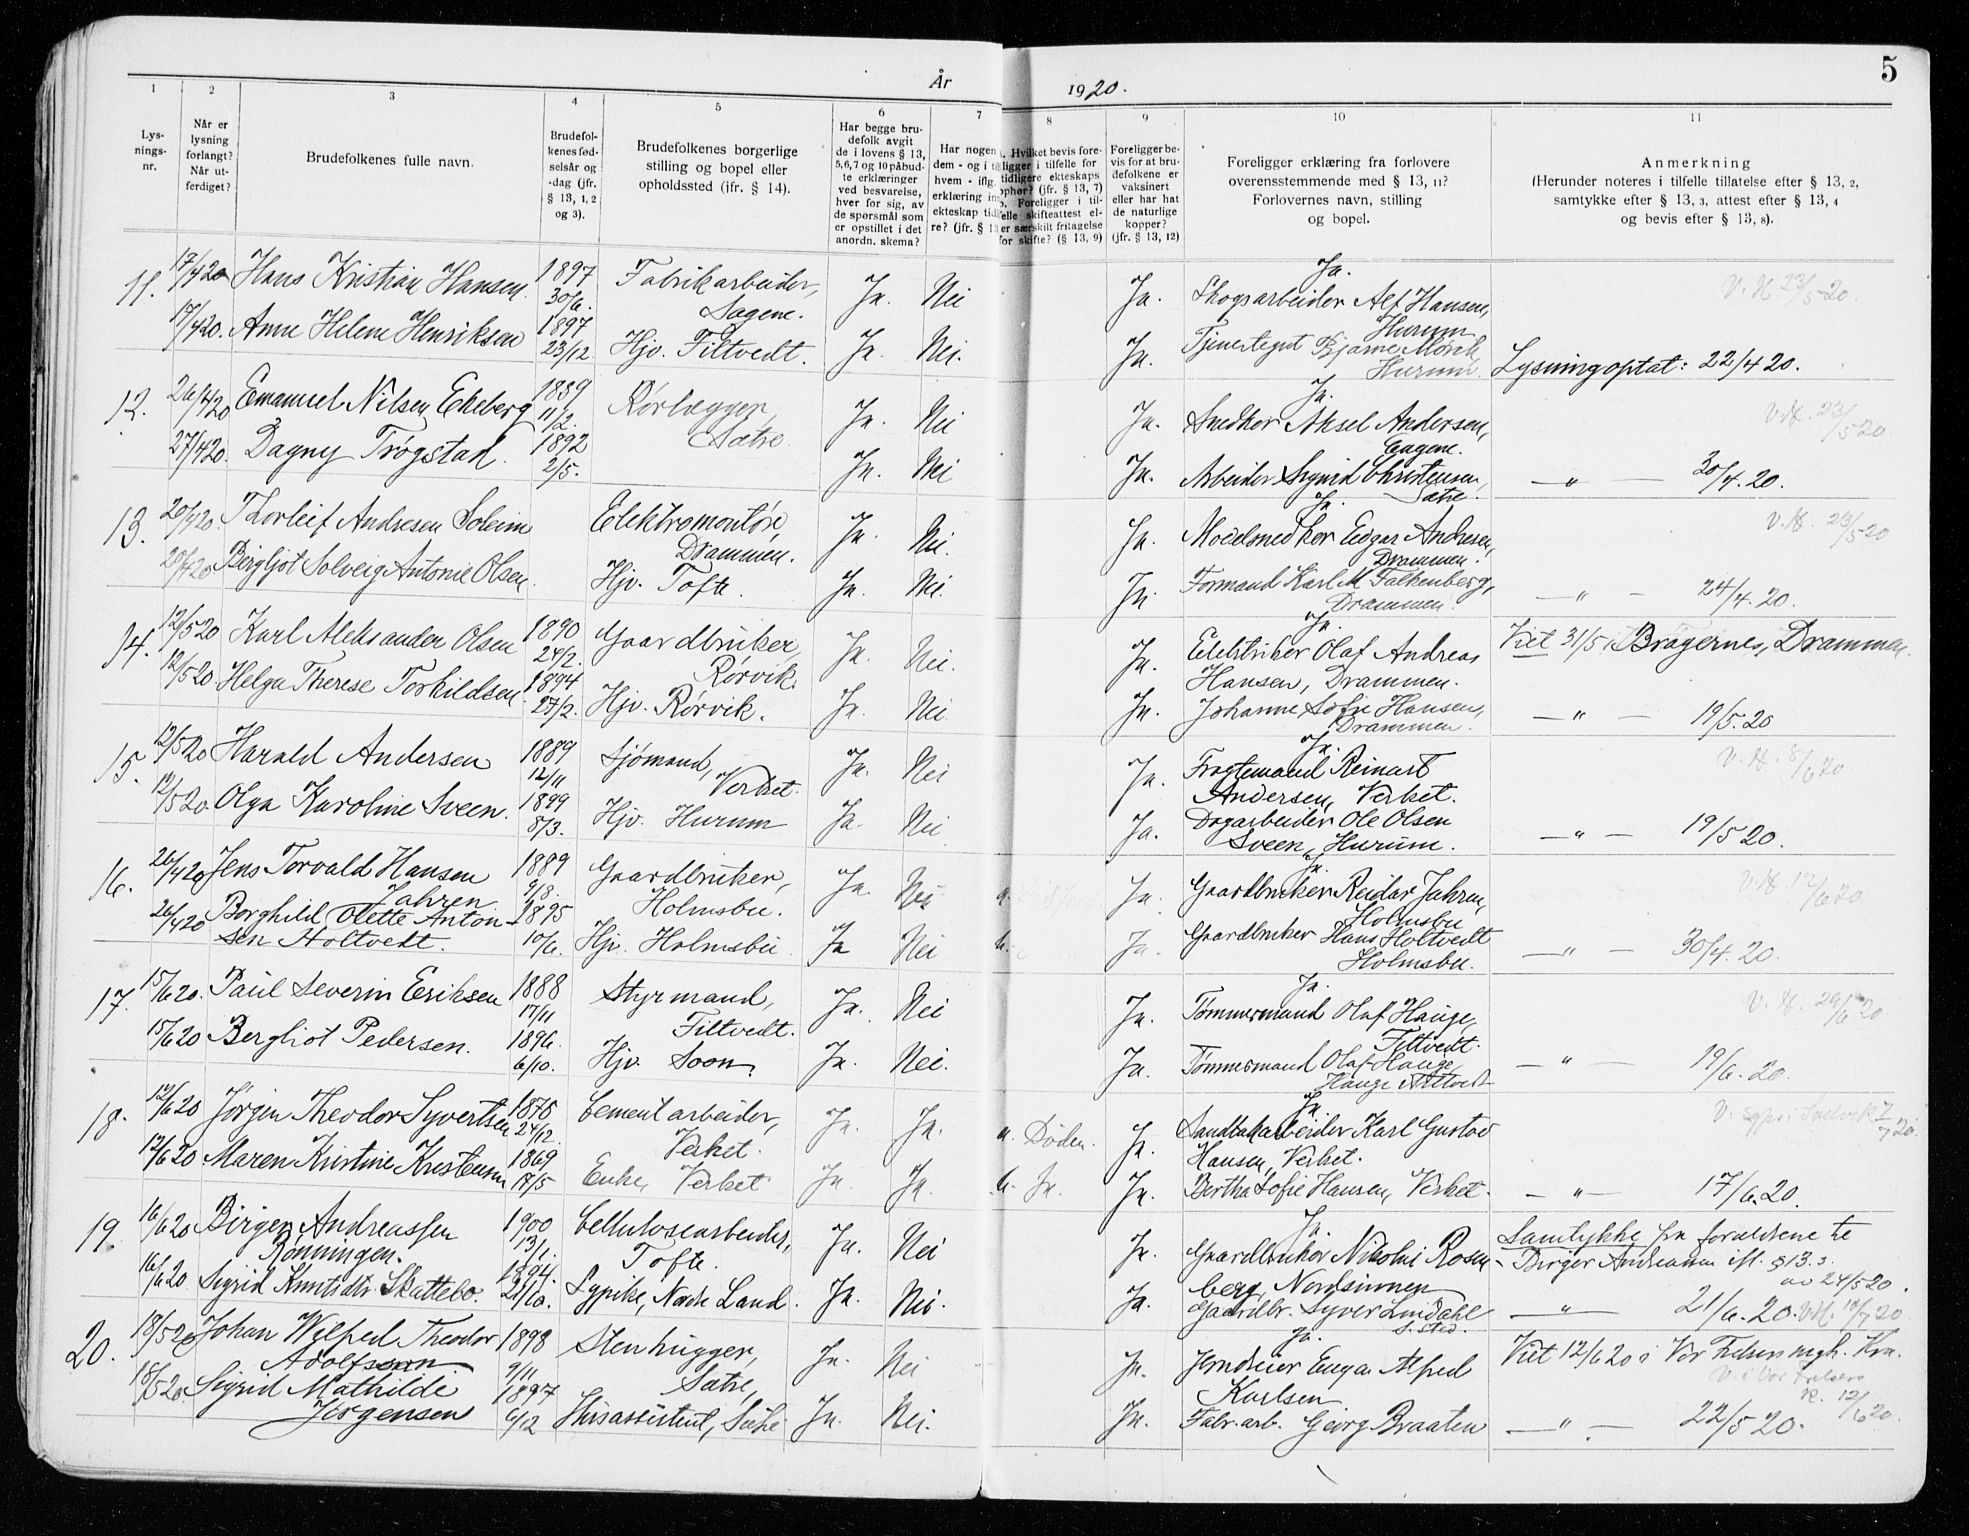 År 1920. 5
1 2 3 4 5 6 7 8 9 10 11
Lys-
nings-
nr.
Når er
lysning
forlangt?
Når ut-
ferdiget?
Brudefolkenes fulle navn.
Brudefol-
kenes fød-
selsår og
-dag (jfr.
§ 13, 1, 2
og 3).
Brudefolkenes borgerlige
stilling og bopel eller
opholdssted (ifr. § 14).
Har begge bru-
defolk avgit
de i lovens § 13,
5, 6, 7 og 10 påbud-
te erklæringer
ved besvarelse,
hver for sig, av
de spørsmål som
er opstillet i det
anordn. skema?
Har nogen
dem - og i
hvem - iflg.
erklæring in
ekteskap tid
re? (jfr. § 13
Hvilket bevis fore-
ligger i tilfelle for
tidligere ekteskaps
ophør? (jfr. § 13, 7)
Foreligger i til-
felle skifteattest el-
er særskilt fritagelse
for skifte? (§ 13, 9)
Foreligger be-
vis for at bru-
defolkene er
vaksinert
eller har hat
de naturlige
kopper?
(jfr. § 13, 12)
Foreligger erklæring fra forlovere
overensstemmende med § 13, 11?
Forlovernes navn, stilling
og bopel.
Anmerkning
(Herunder noteres i tilfelle tillatelse efter § 13, 2,
samtykke efter § 13, 3, attest efter § 13, 4
og bevis efter § 13, 8).
11. 17/4 20 Hans Kristian Hansen 1897 30/6. Fabrikarbeider, Sagene. Ja. Nei Ja. Ja. Skogsarbeider Alf Hansen, Hurum V. H. 23/5-20.
17/4 20. Anne Helene Henriksen 1897 23/12 Hjv. Filtvedt. Ja. Nei. Ja. Tjenestegut Bjarne Mørk, Hurum Lysning optat: 22/4 20.
12. 26/4 20 Emanuel Nilsen Ekeberg 1889 11/2. Rørlægger, Sætre. Ja. Nei Ja. Ja. Snedker Aksel Andersen, Sagene. V. H. 23/5 20.
27/4 20. Dagny Trøgstad. 1892 2/5. Ja. Nei Ja. Arbeider Sigurd Christensen, Sætre. — " — 30/4. 20.
13. 20/4 20. Thorleif Andresen Soleim Elektromontør, Drammen. Ja. Nei. Ja. Ja. Modelsnedker Edgar Andresen, Drammen. V. H. 23/5-20
20/4 20 Bergljot Solveig Antonie Olsen. Hjv. Tofte. Ja. Nei. Ja. Formand Karl M Falkenberg, Drammen. — " — 24/4. 20.
14. 12/5 20 Karl Aleksander Olsen 1890 24/2. Gaardbruker, Rørvik. Ja. Nei. Ja. Ja. Elektriker Olaf Andreas Hansen, Drammen. Viet 31/5 i Bragernes, Drammen.
12/5 20. Helga Therese Torkildsen. 1894 27/2. Hjv. Rørvik. Ja. Nei Ja. Johanne Sofie Hansen, Drammen. — " — 19/5. 20
15. 12/5 20 Harald Andersen 1889 12/11 Sjømand, Verket. Ja. Nei Ja. Ja. Fragtemand Reinart Andersen, Verket. V. H. 8/6 20
12/5 20. Olga Karoline Sveen. 1899 8/3. Hjv. Hurum Ja. Nei Ja. Dagarbeider Ole Olsen Sveen, Hurum. — " — 19/5 20.
16. 26/4 20 Jens Torvald Hansen Jahren 1889 9/8. Gaardbruker, Holmsbu. Ja. Nei a. Ja. Ja. Gaardbruker Reidar Jahren, Holmsbu V. H. 12/6 20
26/4 20 Borghild Olette Anton-sen Holtvedt. 1895 10/6. Hjv. Holmsbu Ja Nei b. Ja. Gaardbruker Hans Holtvedt Holmsbu. — " — 30/4. 20.
17. 15/6 20. Paul Severin Eriksen 1888 17/11 Styrmand, Filtvedt. Ja. Nei Ja. Ja. Tømmermand Olaf Hauge, Filtvedt. V. H. 29/6 20.
15/6 20 Bergliot Pedersen. 1896. 6/10. Hjv. Soon. Ja. Nei. Ja. Tømmermand Olaf Hauge, Hauge Filtvedt — " — 19/6. 20.
18. 12/6 20 Jørgen Theodor Syvertsen 1876 24/12. Cementarbeider, Verket. Ja. Ja. a. Døden. Ja. Ja. Sandtakarbeider Karl Gustav Hansen, Verket. 7/7 20.
12/6 20 Maren Kristine Kristensen 1869 17/5 Enke, Verket Ja. Ja. b. Ja. Ja. Bertha Sofie Hansen, Verket. — " — 17/6. 20.
19. 16/6 20 Birger Andreassen Rønningen. 1900 13/1. Cellulosearbeider, Tofte. Ja. Nei Ja. Ja. Gaardbruker Nikolai Rosen-berg, Nordsinnen Samtykke fra forældrene te Birger Andreassen ifl. § 13. 3. av 24/5 20.
16/6 20 Sigrid Knutsdtr Skattebo. 1894. 21/10. Sypike, Nordre Land. Ja. Nei. Ja. Gaardbr. Syver Lindahl S. sted. — " — 21/6. 20. V. H. 10/7 20
20. 18/5 20 Johan Wilfred Theodor Adolfsen 1898 9/11 Stenhugger, Sætre, Ja. Nei Ja. Ja. Jerndreier Eugen Alfred Karlsen Viet 12/6 20 i Vor Frelsers mgh. Kra. V. i Vor Frelsers K. 12/6 20.
18/5 20. Sigrid Mathilde Jørgensen 1897 6/12 Husassistent, Sætre Ja. Nei. Ja. Fabr. arb. Georg Braaten — " — 22/5 20.